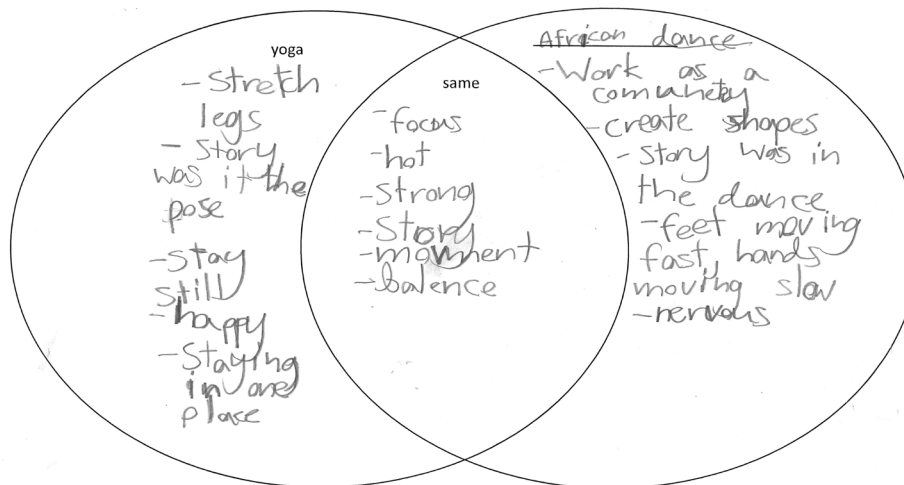 yoga
- Stretch
legs
- Story
was it the
pose
- stay
still
- happy
- Staying
in one
place
same
- focus
- hot
- Strong
- Story
- movment
- balence
African dance
- Work as a
comunety
- create shapes
- Story was in
the dance
- feet moving
fast, hands
moving slow
- nervous